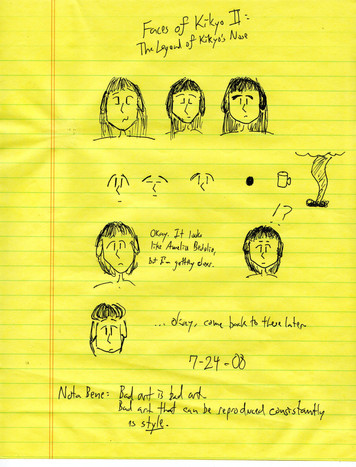 Faces of Kikyo II:
The Legend of Kikyo's Nose
!?
Okay. It looks
like Amelia Bedelia,
but I'm getting close.
...okay, come back to these later.
7-24-08
Nota Bene: Bad art is bad art.
Bad art that can be reproduced consistantly
is style.